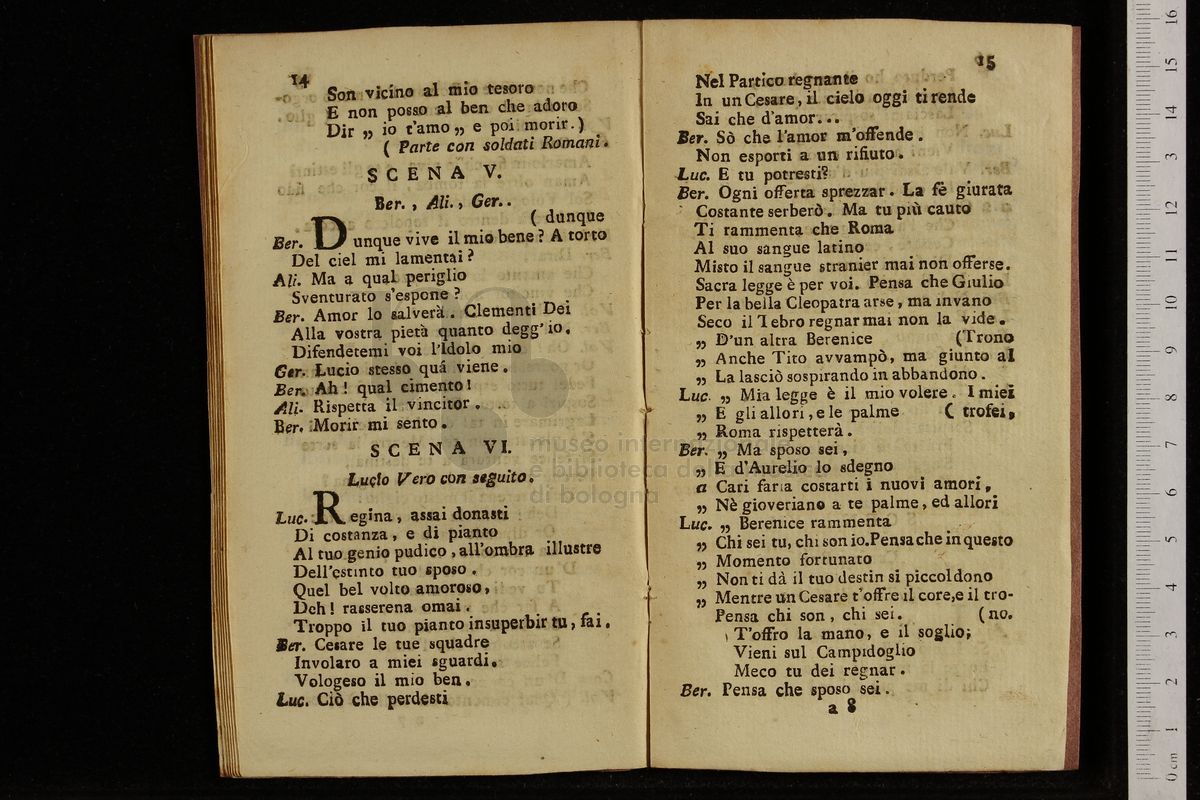 14
Son vicino al mio tesoro
E non posso al ben che adoro
Dir „ io t'amo „ e poi morir.)
( Parte con soldati Romani.
SCENA V.
Ber. , Ali. , Ger..
( dunque
Ber. Dunque vive il mio bene ? A torto
Del ciel mi lamentai ?
Ali. Ma a qual periglio
Sventurato s'espone ?
Ber. Amor lo salverà . Clementi Dei
Alla vostra pietà quanto degg'io.
Difendetemi voi l'Idolo mio
Ger. Lucio stesso quá viene .
Ber. Ah ! qual cimento !
Ali. Rispetta il vincitor .
Ber. Morir mi sento .
SCENA VI.
Lucio Vero con seguito.
Luc. Regina , assai donasti
Di costanza , e di pianto
Al tuo genio pudico , all'ombra illustre
Dell'estinto tuo sposo .
Quel bel volto amoroso,
Deh ! rasserena omai .
Troppo il tuo pianto insuperbir tu, fai.
Ber. Cesare le tue squadre
Involaro a miei sguardi.
Vologeso il mio ben.
Luc. Ciò che perdesti
15
Nel Partico regnante
In un Cesare, il cielo oggi ti rende
Sai che d'amor...
Ber. Sò che l'amor m'offende .
Non esporti a un rifiuto .
Luc. E tu potresti?
Ber. Ogni offerta sprezzar . La fè giurata
Costante serberò . Ma tu più cauto
Ti rammenta che Roma
Al suo sangue latino
Misto il sangue stranier mai non offerse.
Sacra legge è per voi. Pensa che Giulio
Per la bella Cleopatra arse , ma invano
Seco il Tebro regnar mai non la vide .
„ D'un altra Berenice (Trono
„ Anche Tito avvampò, ma giunto al
„ La lasciò sospirando in abbandono .
Luc. „ Mia legge è il mio volere . I miei
„ E gli allori , e le palme ( trofei,
„ Roma rispetterà .
Ber. „ Ma sposo sei ,
„ E d'Aurelio lo sdegno
a Cari faria costarti i nuovi amori ,
„ Nè gioveriano a te palme , ed allori
Luc. „ Berenice rammenta
„ Chi sei tu, chi son io. Pensa che in questo
„ Momento fortunato
„ Non ti dà il tuo destin si piccol dono
„ Mentre un Cesare t'offre il core,e il tro-
Pensa chi son , chi sei. (no.
T'offro la mano, e il soglio;
Vieni sul Campidoglio
Meco tu dei regnar .
Ber. Pensa che sposo sei .
a 8
museo internazionale
e biblioteca della musica
di bologna
0 cm 1 2 3 4 5 6 7 8 9 10 11 12 13 14 15 16